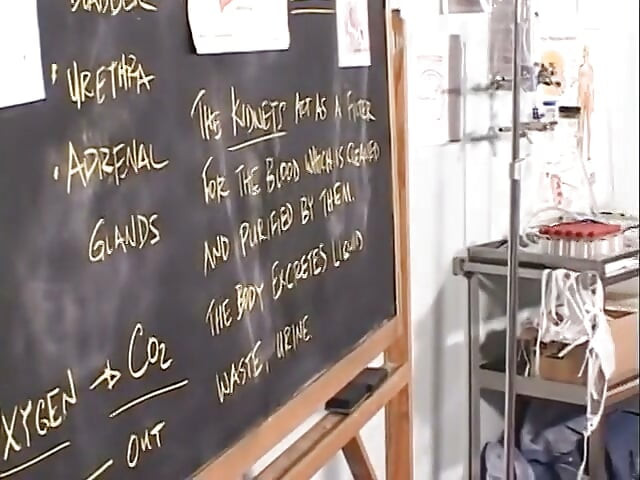 BLADDER
• URETHRA
• ADRENAL
GLANDS
THE KIDNEYS ACT AS A FILTER
FOR THE BLOOD WHICH IS CLEANED
AND PURIFIED BY THEM.
THE BODY EXCRETES LIQUID
WASTE, URINE
OXYGEN → CO2
OUT